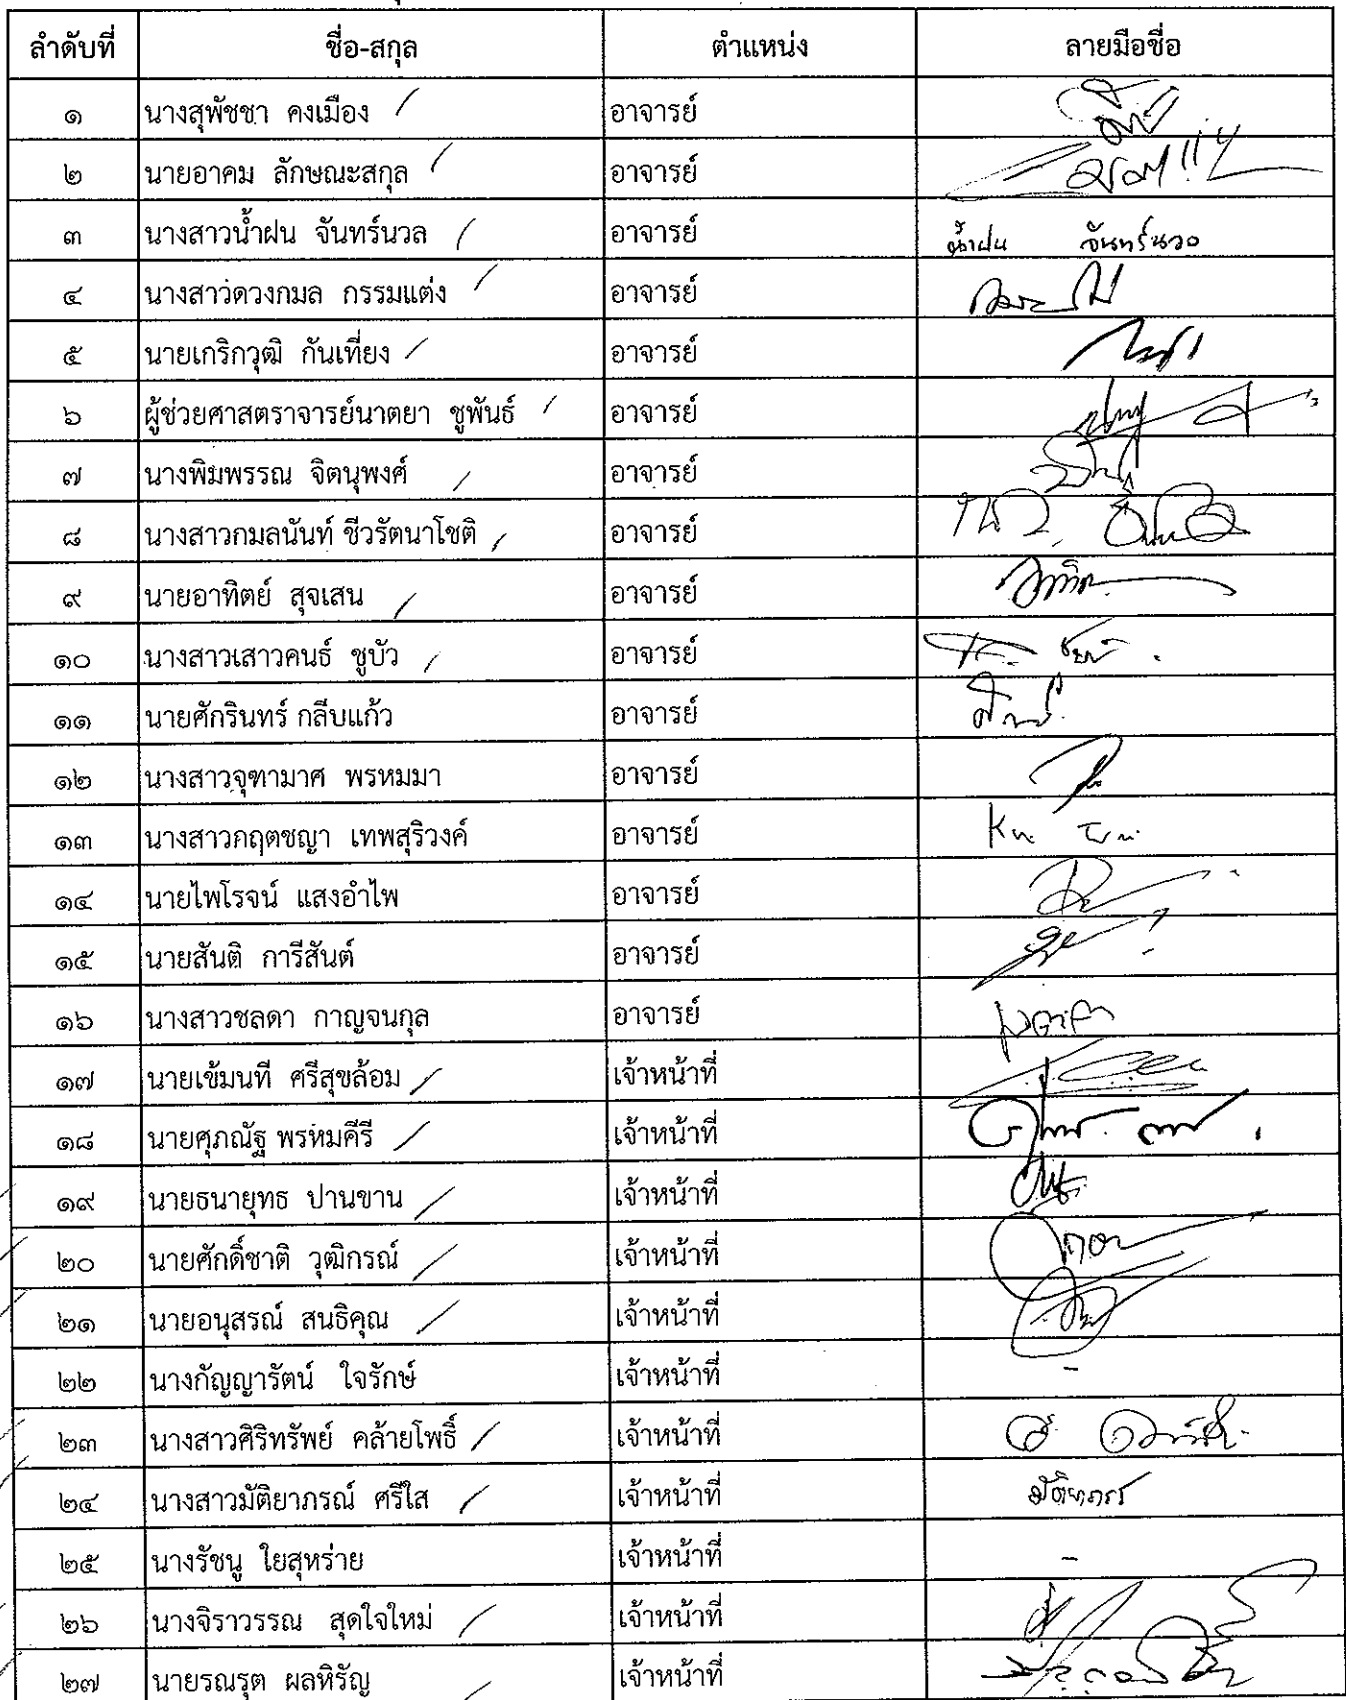 ลำดับที่ ชื่อ-สกุล ตำแหน่ง ลายมือชื่อ
๑ นางสุพัชชา คงเมือง อาจารย์
๒ นายอาคม ลักษณะสกุล อาจารย์
๓ นางสาวน้ำฝน จันทร์นวล อาจารย์ น้ำฝน จันทร์นวล
๔ นางสาวดวงกมล กรรมแต่ง อาจารย์
๕ นายเกริกวุฒิ กันเที่ยง อาจารย์
๖ ผู้ช่วยศาสตราจารย์นาตยา ชูพันธ์ อาจารย์
๗ นางพิมพรรณ จิตนุพงศ์ อาจารย์
๘ นางสาวกมลนันท์ ชีวรัตนาโชติ อาจารย์
๙ นายอาทิตย์ สุจเสน อาจารย์
๑๐ นางสาวเสาวคนธ์ ชูบัว อาจารย์
๑๑ นายศักรินทร์ กลีบแก้ว อาจารย์
๑๒ นางสาวจุฑามาศ พรหมมา อาจารย์
๑๓ นางสาวกฤตชญา เทพสุริวงค์ อาจารย์
๑๔ นายไพโรจน์ แสงอำไพ อาจารย์
๑๕ นายสันติ การีสันต์ อาจารย์
๑๖ นางสาวชลดา กาญจนกุล อาจารย์
๑๗ นายเข้มนที ศรีสุขล้อม เจ้าหน้าที่
๑๘ นายศุภณัฐ พรหมคีรี เจ้าหน้าที่
๑๙ นายธนายุทธ ปานขาน เจ้าหน้าที่
๒๐ นายศักดิ์ชาติ วุฒิกรณ์ เจ้าหน้าที่
๒๑ นายอนุสรณ์ สนธิคุณ เจ้าหน้าที่
๒๒ นางกัญญารัตน์ ใจรักษ์ เจ้าหน้าที่ -
๒๓ นางสาวศิริทรัพย์ คล้ายโพธิ์ เจ้าหน้าที่
๒๔ นางสาวมัติยาภรณ์ ศรีใส เจ้าหน้าที่ มัติยาภรณ์
๒๕ นางรัชนู ใยสุหร่าย เจ้าหน้าที่ -
๒๖ นางจิราวรรณ สุดใจใหม่ เจ้าหน้าที่
๒๗ นายรณรุต ผลหิรัญ เจ้าหน้าที่